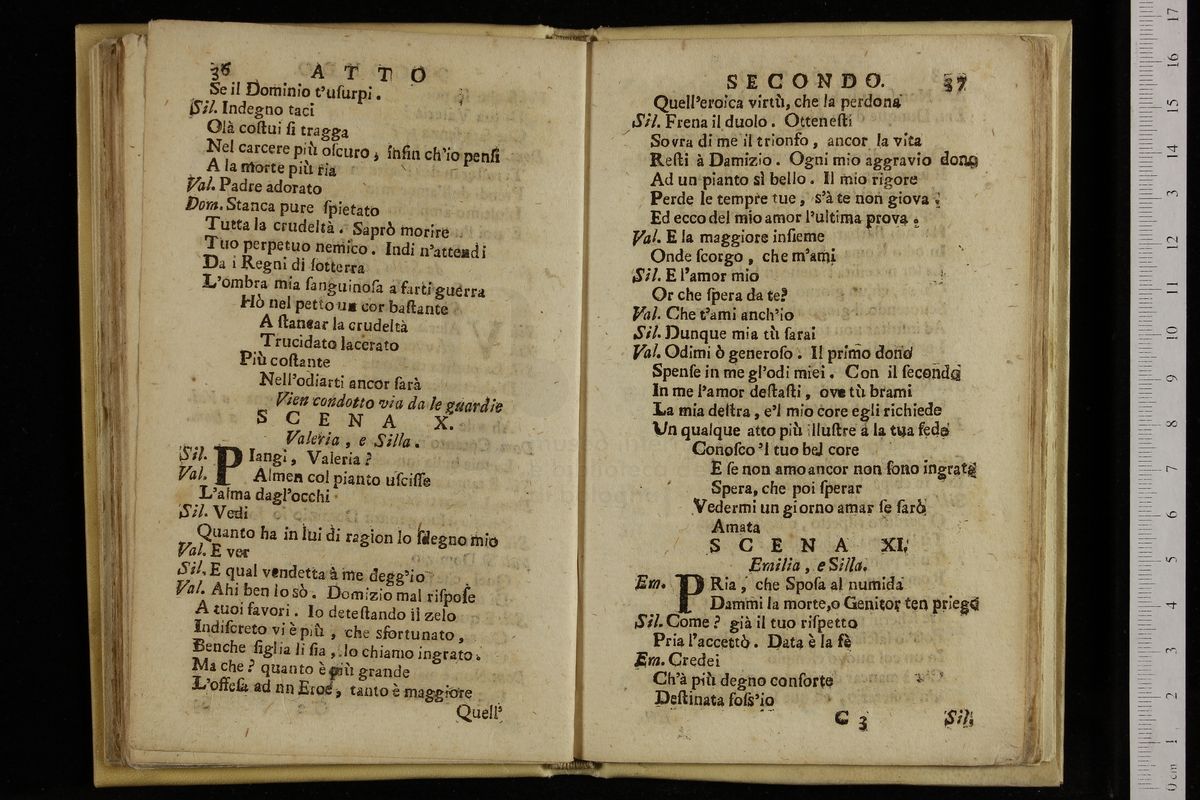 36 ATTO
Se il Dominio t'uſurpi.
Sil. Indegno taci
Olà coſtui ſi tragga
Nel carcere più oſcuro, inſin ch'io penſi
A la morte più ria
Val. Padre adorato
Dom. Stanca pure ſpietato
Tutta la crudeltà. Saprò morire
Tuo perpetuo nemico. Indi n'attendi
Da i Regni di ſotterra
L'ombra mia ſanguinoſa a farti guerra
Hò nel petto un cor baſtante
A ſtancar la crudeltà
Trucidato lacerato
Più coſtante
Nell'odiarti ancor ſarà
Vien condotto via da le guardie
SCENA X.
Valeria, e Silla.
Sil. PIangi, Valeria?
Val. Almen col pianto uſciſſe
L'alma dagl'occhi
Sil. Vedi
Quanto ha in lui di ragion lo ſdegno mio
Val. E ver
Sil. E qual vendetta à me degg'io
Val. Ahi ben lo sò. Domizio mal riſpoſe
A tuoi favori. Io deteſtando il zelo
Indiſcreto vi è più, che sfortunato,
Benche figlia li ſia, lo chiamo ingrato.
Ma che? quanto è più grande
L'offeſa ad nn Eroe, tanto è maggiore
Quell'
SECONDO. 37
Quell'eroica virtù, che la perdona
Sil. Frena il duolo. Otteneſti
Sovra di me il trionfo, ancor la vita
Reſti à Damizio. Ogni mio aggravio dono
Ad un pianto sì bello. Il mio rigore
Perde le tempre tue, s'à te non giova.
Ed ecco del mio amor l'ultima prova.
Val. E la maggiore inſieme
Onde ſcorgo, che m'ami
Sil. E l'amor mio
Or che ſpera da te?
Val. Che t'ami anch'io
Sil. Dunque mia tù ſarai
Val. Odimi ò generoſo. Il primo dono
Spenſe in me gl'odi miei. Con il ſecondo
In me l'amor deſtaſti, ove tù brami
La mia deſtra, e'l mio core egli richiede
Un qualque atto più illuſtre a la tua fede
Conoſco 'l tuo bel core
E ſe non amo ancor non ſono ingrata
Spera, che poi ſperar
Vedermi un giorno amar ſe ſarò
Amata
SCENA XI.
Emilia, e Silla.
Em. PRia, che Spoſa al numida
Dammi la morte, o Genitor ten priego
Sil. Come? già il tuo riſpetto
Pria l'accettò. Data è la fè
Em. Credei
Ch'à più degno conſorte
Deſtinata foſs'io
C 3 Sil.